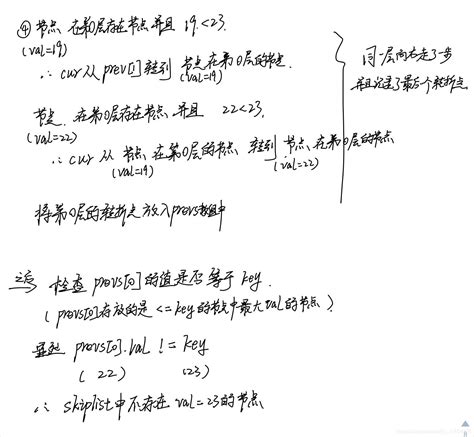 ④ 节点 在第0层存在节点 并且 19<23.
(val=19)
∴ cur从prev[]转到 节点在第0层的节点.
(val=19)
同一层向右走了一步
并且记录了最后一个转折点
节点 在第0层存在节点, 并且 22<23.
(val=22)
∴ cur从 节点 在第0层的节点 转到 节点 在第0层的节点
(val=19) (val=22)
将第0层的转折点放入prevs数组中
之后 检查 prevs[0]的值是否等于key.
(prevs[0]存放的是<=key的节点中最大val的节点).
显然 prevs[0].val != key
(22) (23)
∴ skiplist中不存在val=23的节点